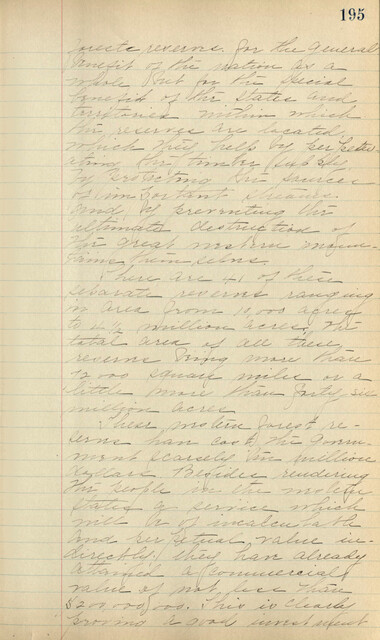 195
forests reserves. for the general
benefit of the nation as a
whole But for the special
benefit of the states and
territories within which
the reserves are located
which they help by perpetu-
ating the timber supply
by protecting the sources
of important streams.
and by preventing the
ultimate destruction of
the great western moun-
tains themselves.
There are 41 of these
separate reserves ranging
in area from 10,000 acres
to 4½ million acres, the
total area of all these
reserves being more than
72,000 square miles or a
little more than forty six
million acres
These western forest re-
serves have cost the govern-
ment scarcely million
dollars Besides rendering
the people in the western
states a service which
will be of incalculable
and perpetual value in-
directly, they have already
attained a commercial
value of not less than
$200,000,000. This is clearly
proving a good investment